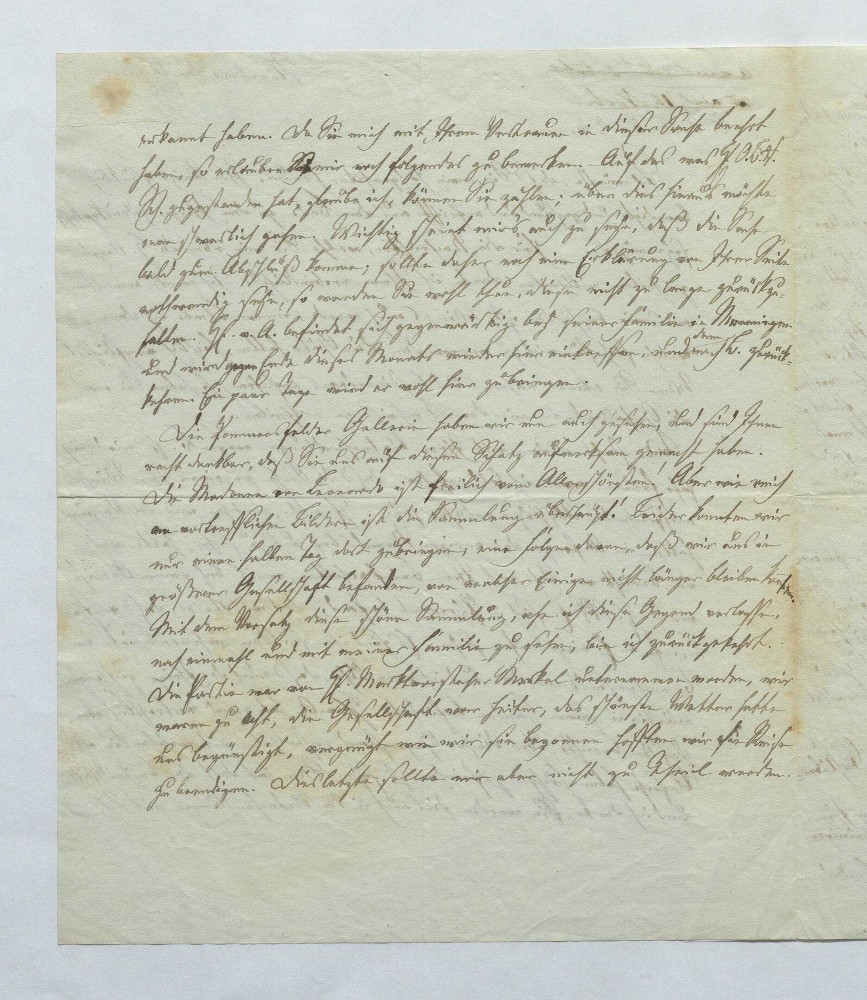 erkannt haben. Da Sie mich mit Ihrem Vertrauen in dieser Sache beehrt
haben, so erlauben Sie mir noch folgendes zu bemerken. Auf das was H O.
Sch. zugestanden hat, glaube ich, können Sie zählen; über dies hinaus möchte
man schwerlich gehen. Wichtig scheint mirs auch zu seyn, daß die Sache
bald zum Abschluß komme; sollte daher noch eine Erklärung von Ihrer Seite
nothwendig seyn, so werden Sie wohl thun, diese nicht zu lange zurückzu-
halten. H. v. A. befindet sich gegenwärtig bey seiner Familie in
und wird gegen Ende dieses Monats wieder hier eintreffen, und dann nach zurück-
kehren. Ein paar Tage wird er wohl hier zubringen.
Die Pommersfelder Gallerie haben wir nun auch gesehen, und sind Ihnen
recht dankbar, daß Sie uns auf diesen Schatz aufmerksam gemacht haben.
Die Madonna von Leonardo ist freilich vom Allerschönsten! Aber wie reich
an vortrefflichen Bildern ist die Sammlung überhaupt! Leider konnten wir
nur einen halben Tag dort zubringen, eine Folge davon, daß wir uns in
größerer Gesellschaft befanden, von welcher Einige nicht länger bleiben konnten.
Mit dem Vorsatz diese schöne Sammlung, ehe ich diese Gegend verlasse,
noch einmahl und mit meiner Familie zu sehen, bin ich zurückgekehrt.
Die Partie war von H. Marktvorsteher Merkel unternommen worden, wir
waren zu acht, die Gesellschaft war heiter, das schönste Wetter hatte
uns begünstigt, vergnügt wie wir sie begonnen hofften wir die Reise
zu beendigen. Dies letzte sollte mir aber nicht zu Theil werden.